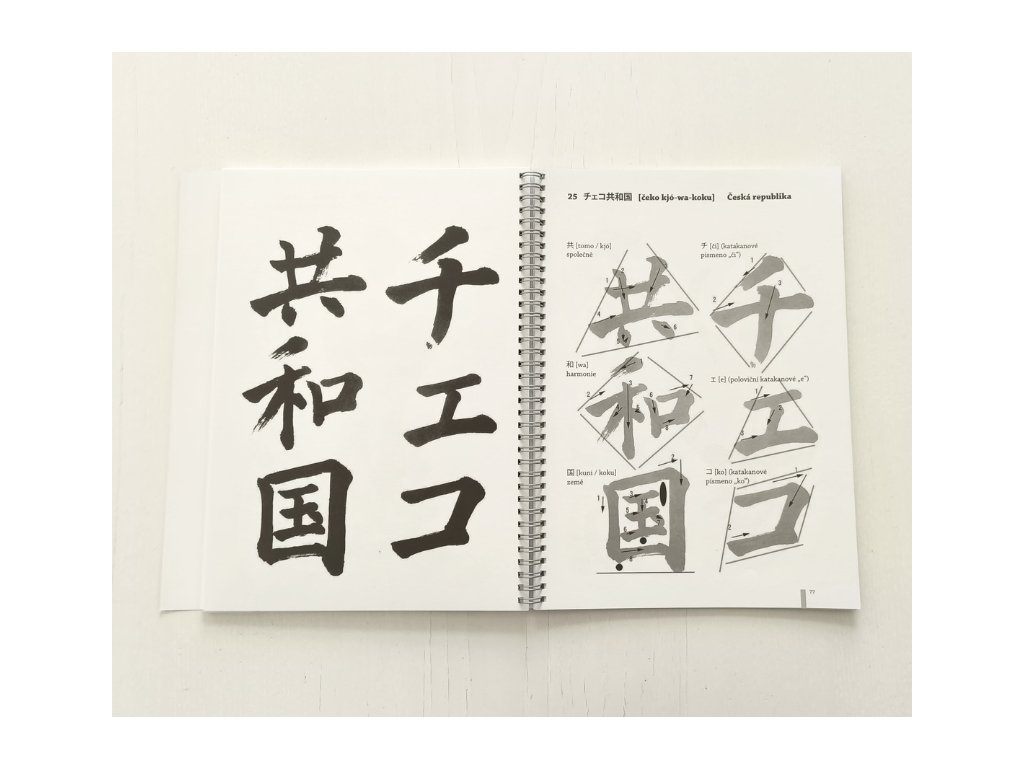 チェコ
共和国
25 チェコ共和国 [čeko kjó-wa-koku] Česká republika
共 [tomo / kjó]
společně
チ [či] (katakanové
písmeno „či“)
和 [wa]
harmonie
ェ [e] (poloviční katakanové „e“)
国 [kuni / koku]
země
コ [ko] (katakanové
písmeno „ko“)
77